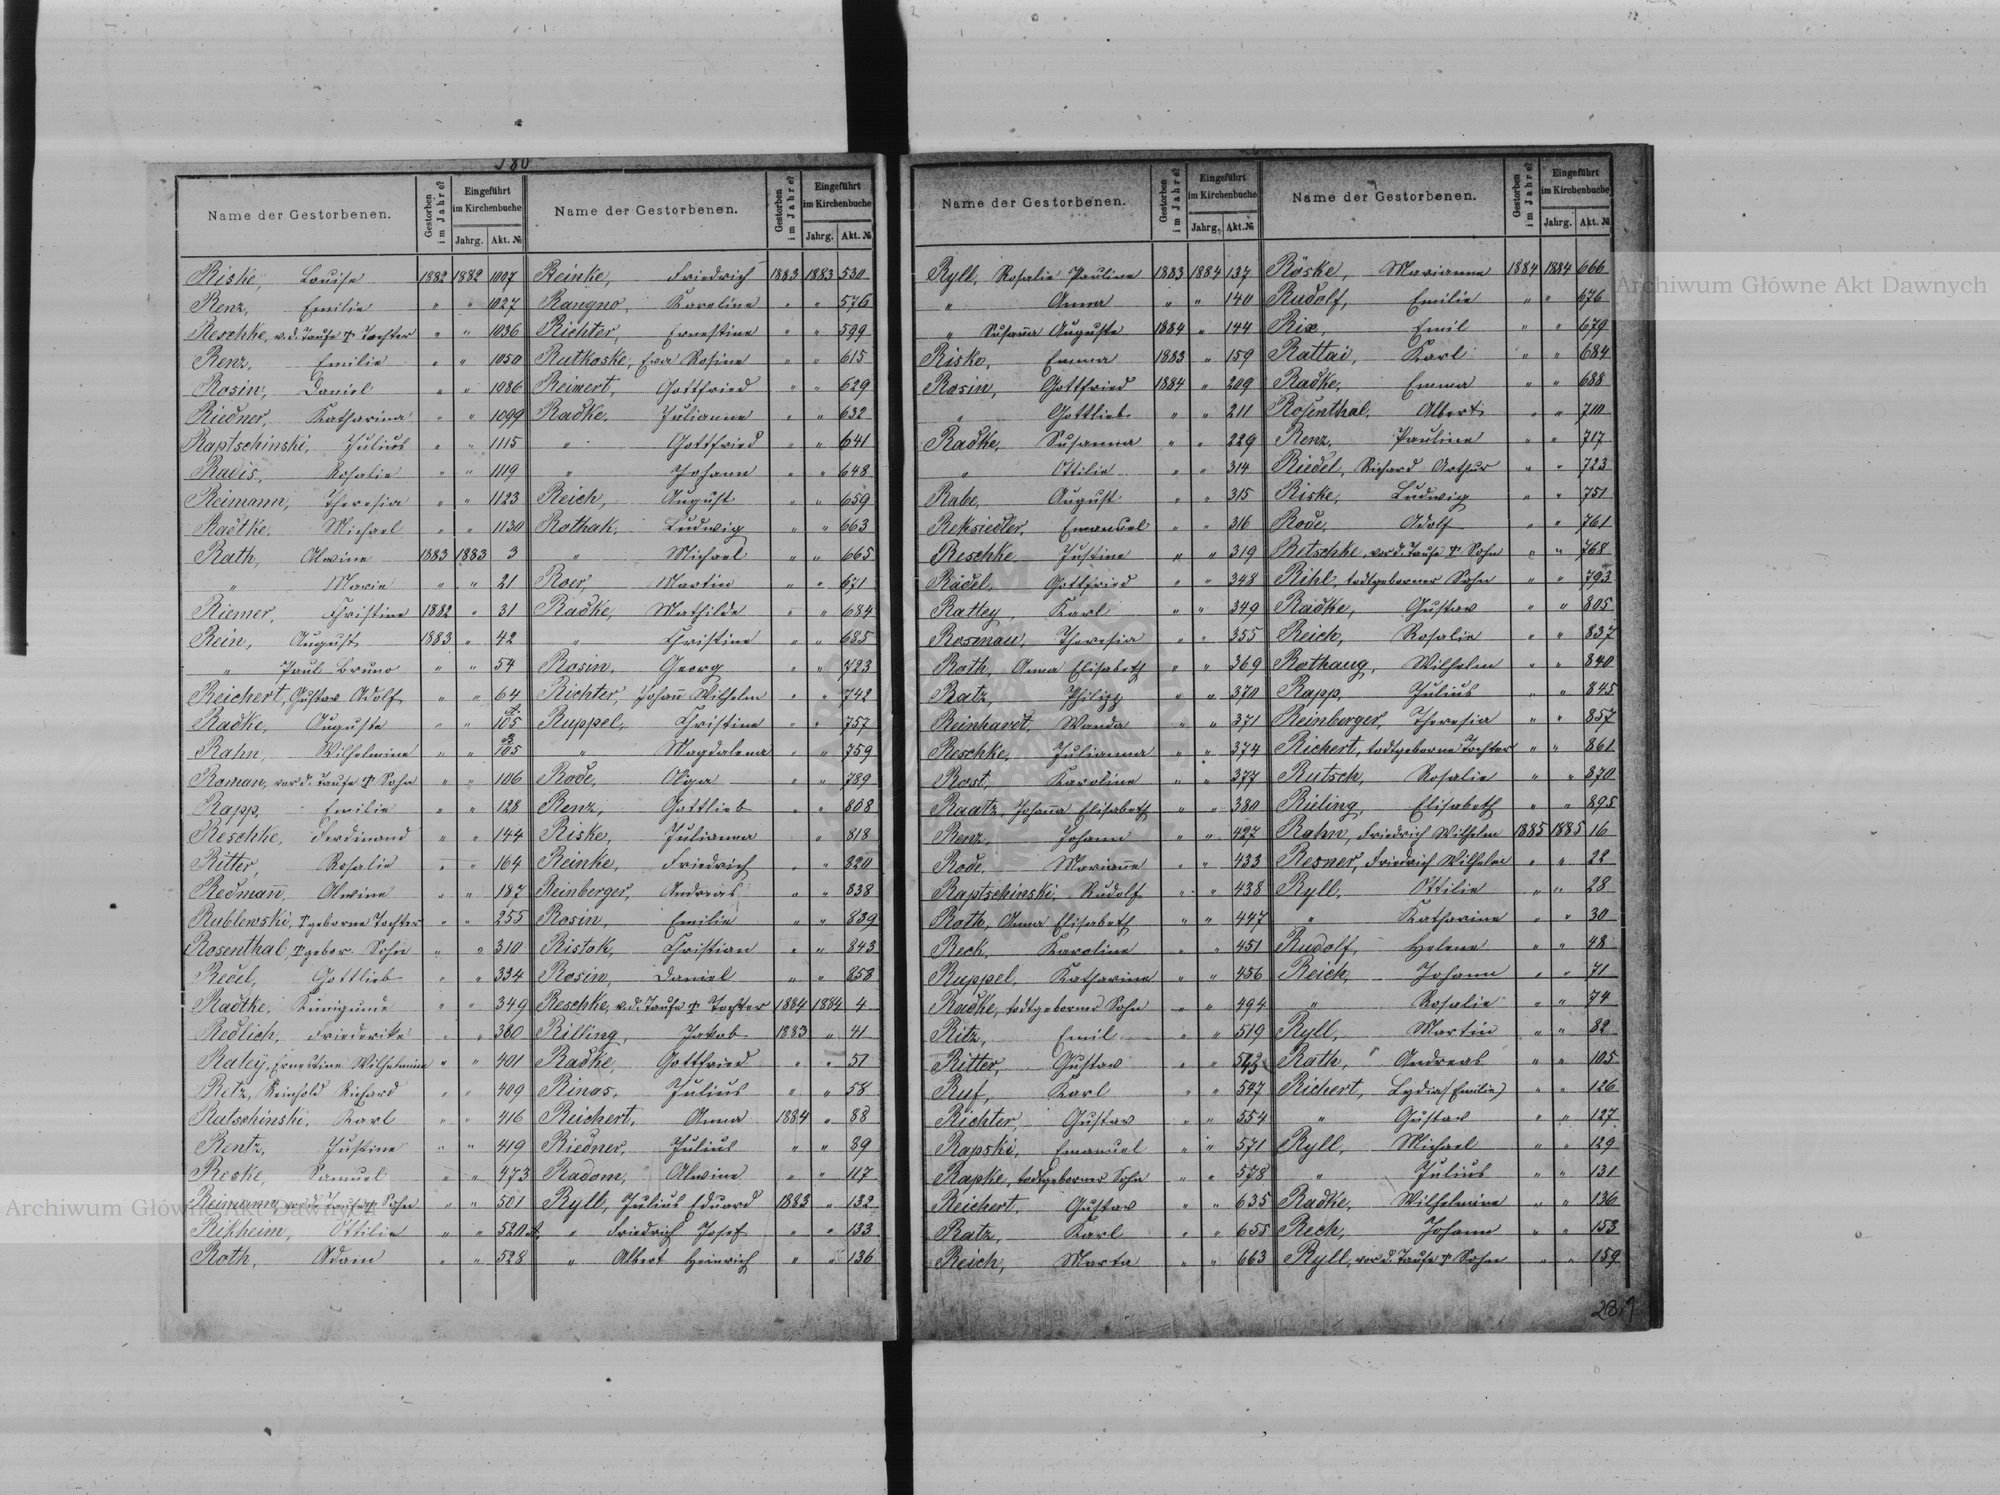 280
Name der Gestorbenen. Gestorben im Jahre? Eingeführt im Kirchenbuche Jahrg. Akt. №
Riske, Louise 1882 1882 1007
Renz, Emilie " " 1027
Reschke, v. d. Taufe † Tochter " " 1036
Renz, Emilie " " 1050
Rosin, Daniel " " 1086
Riedner, Katharina " " 1099
Raptschinski, Julius " " 1115
Radis, Rosalie " " 1119
Reimann, Theresia " " 1123
Radtke, Michael " " 1130
Rath, Alwine 1883 1883 3
" Marie " " 21
Riemer, Christine 1882 " 31
Rein, August 1883 " 42
" Paul Bruno " " 54
Reichert, Gustav Adolf " " 64
Radke, Auguste " " 105
Rahn, Wilhelmine " " 105
Roman, vor d. Taufe † Sohn " " 106
Rapp, Emilie " " 128
Reschke, Ferdinand " " 144
Ritter, Rosalie " " 164
Redman̄, Alwine " " 187
Rublewski, †geborne Tochter " " 255
Rosenthal, †gebor. Sohn " " 310
Redel, Gottlieb " " 334
Radtke, Kunigunde " " 349
Redlich, Friederike " " 360
Ratey, Ernestine Wilhelmine " " 401
Retz, Reinhold Richard " " 409
Ratschinski, Karl " " 416
Rentz, Justine " " 419
Reske, Samuel " " 473
Reimann, vor d. Taufe † Sohn " " 501
Rikheim, Ottilie " " 520a
Roth, Adam " " 528
Name der Gestorbenen. Gestorben im Jahre? Eingeführt im Kirchenbuche Jahrg. Akt. №
Reinke, Friedrich 1883 1883 530
Rangno, Karoline " " 576
Richter, Ernestine " " 599
Rutkoske, Eva Rosine " " 615
Reimert, Gottfried " " 629
Radke, Julianne " " 632
" Gottfried " " 641
" Johann " " 648
Reich, August " " 659
Rothak, Ludwig " " 663
" Michael " " 665
Roer, Martin " " 671
Radke, Mathilde " " 684
" Christine " " 685
Rosin, Georg " " 723
Richter, Johan̄ Wilhelm " " 742
Ruppel, Christine " " 757
" Magdalena " " 759
Rode, Olga " " 789
Renz, Gottlieb " " 808
Riske, Julianna " 818
Reinke, Friedrich " " 820
Reinberger, Andreas " " 838
Rosin, Emilie " " 839
Ristok, Christian " " 843
Rosin, Daniel " " 858
Reschke, v. d. Taufe † Tochter 1884 1884 4
Rilling, Jakob 1883 " 41
Radke, Gottfried " " 51
Rinas, Julius " " 58
Reichert, Anna 1884 " 88
Riedner, Julius " " 89
Radom, Alwine " " 117
Ryll, Julius Eduard 1883 " 132
" Friedrich Josef " " 133
" Albert Heinrich " " 136
Name der Gestorbenen. Gestorben im Jahre? Eingeführt im Kirchenbuche Jahrg. Akt. №
Ryll, Rosalie Pauline 1883 1884 137
" Anna " " 140
" Susan̄a Auguste 1884 " 144
Risko, Emma 1883 " 159
Rosin, Gottfried 1884 " 209
" Gottlieb " " 211
Radke, Susanna " " 229
" Ottilie " " 314
Rabe, August " " 315
Reksiedler, Emanuel " " 316
Reschke, Justine " " 319
Rädel, Gottfried " " 348
Ratley, Karl " " 349
Rosmau, Theresia " " 355
Roth, Anna Elisabeth " " 369
Ratz, Philipp " " 370
Reinhardt, Wanda " " 371
Reschke, Julianna " " 374
Rost, Karoline " " 377
Raatz, Johan̄a Elisabeth " " 380
Renz, Johann " " 427
Rode, Marian̄e " " 433
Raptschinski, Rudolf " " 438
Roth, Anna Elisabeth " " 447
Rech, Karoline " " 451
Ruppel, Katharine " " 456
Radke, todtgeborner Sohn " " 494
Ritz, Emil " " 519
Ritter, Gustav " "
Ruf, Karl " " 547
Richter, Gustav " " 554
Rapski, Emanuel " " 571
Rapke, todtgeborner Sohn " " 578
Reichert, Gustav " " 635
Ratz, Karl " " 655
Reich, Marta " " 663
Name der Gestorbenen. Gestorben im Jahre? Eingeführt im Kirchenbuche Jahrg. Akt. №
Röske, Marianne 1884 1884 666
Rudolf, Emilie " " 676
Rix, Emil " " 679
Rattai, Karl " " 684
Radke, Emma " " 688
Rosenthal, Albert " " 710
Renz, Pauline " " 717
Riedel, Richard Arthur " " 723
Riske, Ludwig " " 751
Rode, Adolf " " 761
Retschke, vor d. Taufe † Sohn " " 768
Rihl, todtgeborner Sohn " " 793
Radke, Gustav " " 805
Reich, Rosalie " " 837
Rothaug, Wilhelm " " 840
Rapp, Julius " " 845
Reinberger, Theresia " " 857
Richert, todtgeborne Tochter " " 861
Rutsch, Rosalie " " 870
Rieling, Elisabeth " " 895
Rahn, Friedrich Wilhelm 1885 1885 16
Resner, Friedrich Wilhelm " " 22
Ryll, Ottilie " " 28
" Katharine " " 30
Rudolf, Helene " " 48
Reich, Johann " " 71
" Rosalie " " 74
Ryll, Martin " " 82
Rath, Andreas " " 105
Richert, Lydia (Emilie) " " 126
" Gustav " " 127
Ryll, Michael " " 129
" Julius " " 131
Radke, Wilhelmine " " 136
Rech, Johann " " 153
Ryll, vor d. Taufe † Sohn " " 159
Archiwum Główne Akt Dawnych
Archiwum Główne Akt Dawnych